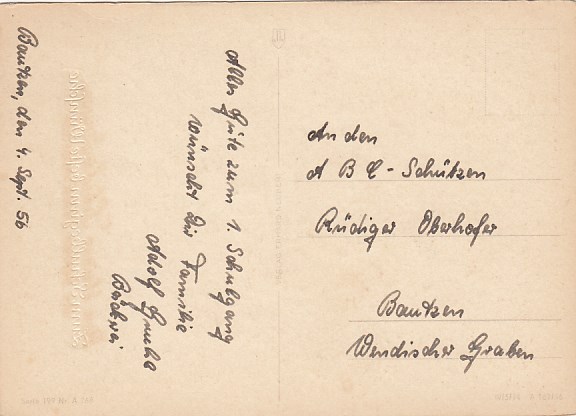 Bautzen, den 4. Sept. 56
Alles Gute zum 1. Schulgang
wünscht Dir Familie
Adolf
Bäckerei
An den
A B C - Schützen
Rüdiger Oberhofer
Bautzen
Wendischer Graben